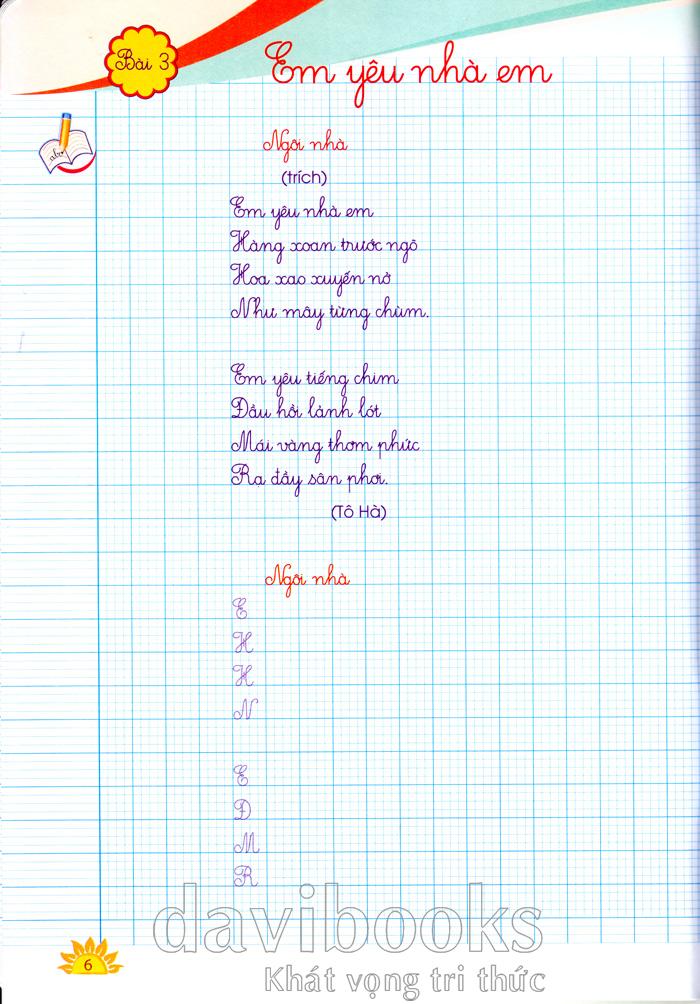 Bài 3
Em yêu nhà em
Ngôi nhà
(trích)
Em yêu nhà em
Hàng xoan trước ngõ
Hoa xao xuyến nở
Như mây từng chùm.
Em yêu tiếng chim
Đầu hồi lảnh lót
Mái vàng thơm phức
Ra đầy sân phơi.
(Tô Hà)
Ngôi nhà
E
H
H
N
E
Đ
M
R
davibooks
Khát vọng tri thức
6